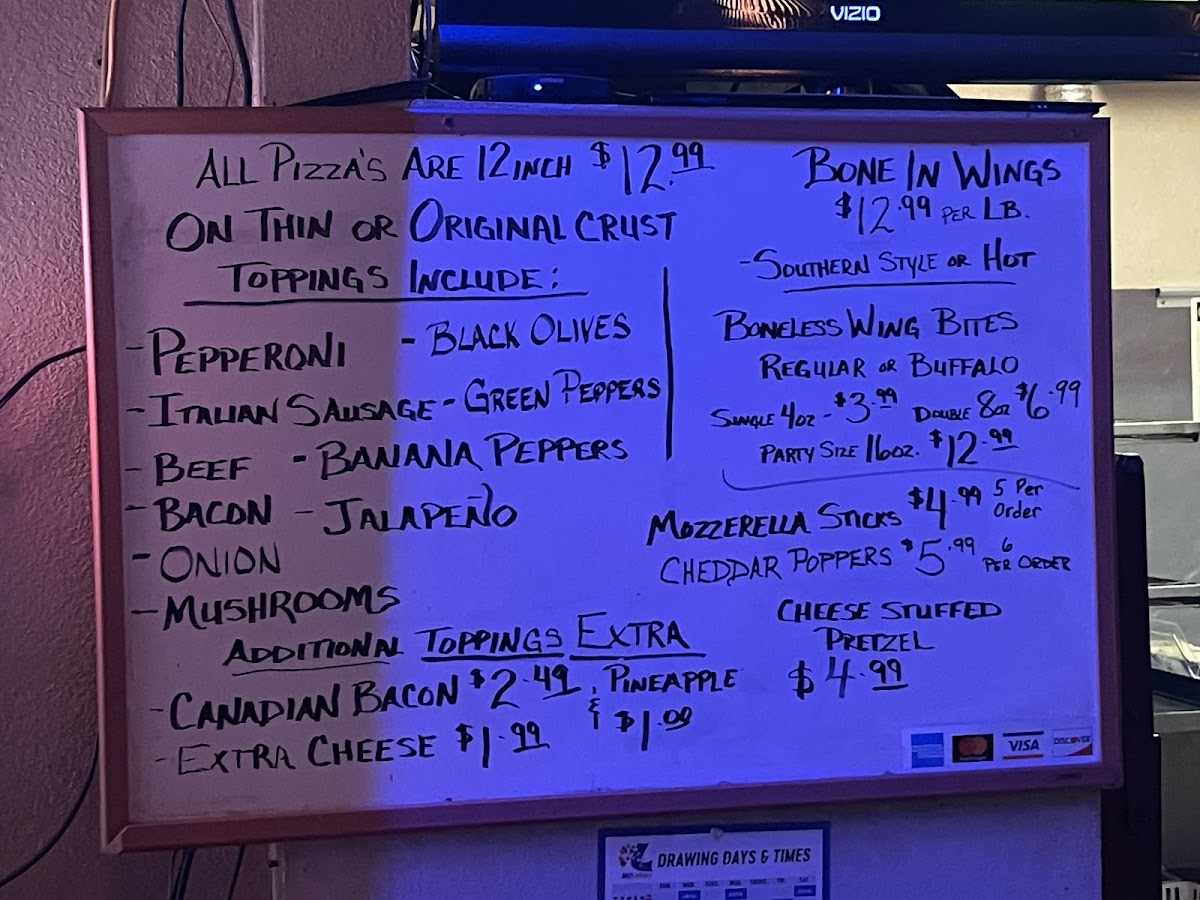 VIZIO
ALL PIZZA'S ARE 12 INCH $12.99
ON THIN OR ORIGINAL CRUST
TOPPINGS INCLUDE:
- PEPPERONI - BLACK OLIVES
- ITALIAN SAUSAGE - GREEN PEPPERS
- BEEF - BANANA PEPPERS
- BACON - JALAPEÑO
- ONION
- MUSHROOMS
ADDITIONAL TOPPINGS EXTRA
- CANADIAN BACON $2.49 & PINEAPPLE $1.00
- EXTRA CHEESE $1.99
BONE IN WINGS
$12.99 PER LB.
- SOUTHERN STYLE OR HOT
BONELESS WING BITES
REGULAR OR BUFFALO
SINGLE 4OZ - $3.99 DOUBLE 8OZ $6.99
PARTY SIZE 16OZ. $12.99
MOZZERELLA STICKS $4.99 5 Per Order
CHEDDAR POPPERS $5.99 6 PER ORDER
CHEESE STUFFED
PRETZEL
$4.99
VISA DISCOVER
DRAWING DAYS & TIMES